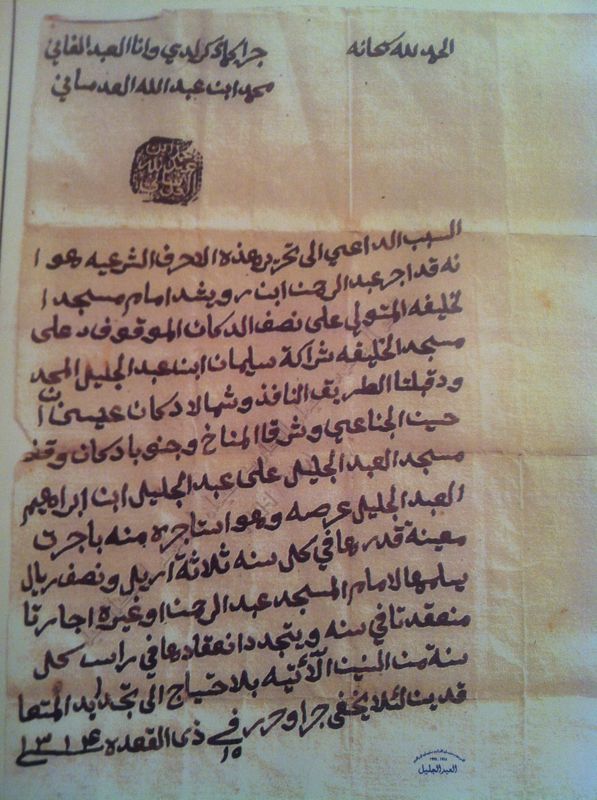 الحمد لله سبحانه
جرا كما ذكر لدي وانا العبد الفاني
محمد ابن عبد الله العدساني
السبب الداعي الى تحرير هذه الاحرف الشرعيه هوا
نه قد اجر عبد الرحمن ابن رويشد امام مسجد ا
لخليفه المتولي على نصف الدكان الموقوف على
مسجد الخليفه شراكة سليمان ابن عبد الجليل المحد
ود قبلتا الطريق النافذ وشمالا دكان عيسى ابن
حسين الجناعي وشرقا المناخ وجنوبا دكان وقف
مسجد العبد الجليل على عبد الجليل ابن ابراهيم
العبد الجليل عرصه وهو استاجره منه باجرت
معينة قدرها في كل سنه ثلاثة اريل ونصف ريال
يسلمها لامام المسجد عبد الرحمن او غيره اجارتا
منعقدتا في سنه ويتجدد انعقادها في راس كل
سنة من السنين الآتيه بلا احتياج الى تجديد المتعا
قدين لئلا يخفى جرا وحرر في ١٥ ذي القعده ١٣١٤
العبد الجليل